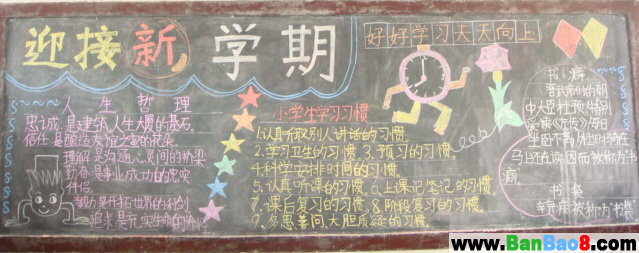 迎接新学期
好好学习天天向上
人生哲理
忠诚是建筑人生大厦的基石。
理解是沟通心灵间的桥梁
勤奋是事业成功的忠实
伴侣
毅力是开拓世界的利剑
追求是充实生命的
小学生学习习惯
1.认真听取别人讲话的习惯.
2.学习卫生的习惯 3.预习的习惯.
4.科学安排时间的习惯.
5.认真听课的习惯. 6.上课记笔记的习惯.
7.课后复习的习惯. 8.阶段复习的习惯.
9.多思善问、大胆质疑的习惯.
书癖
中大臣杜预,特别
爱读《左传》,每日
马上还在读,因而被称为书
癖
www.BanBao8.com